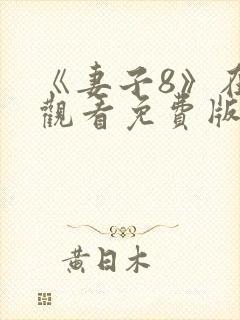 《妻子8》在
觀看免費版
黃日木